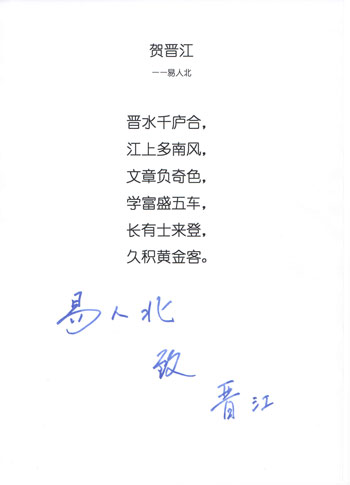 贺晋江
——易人北
晋水千庐合，
江上多南风，
文章负奇色，
学富盛五车，
长有士来登，
久积黄金客。
易人北
致
晋江